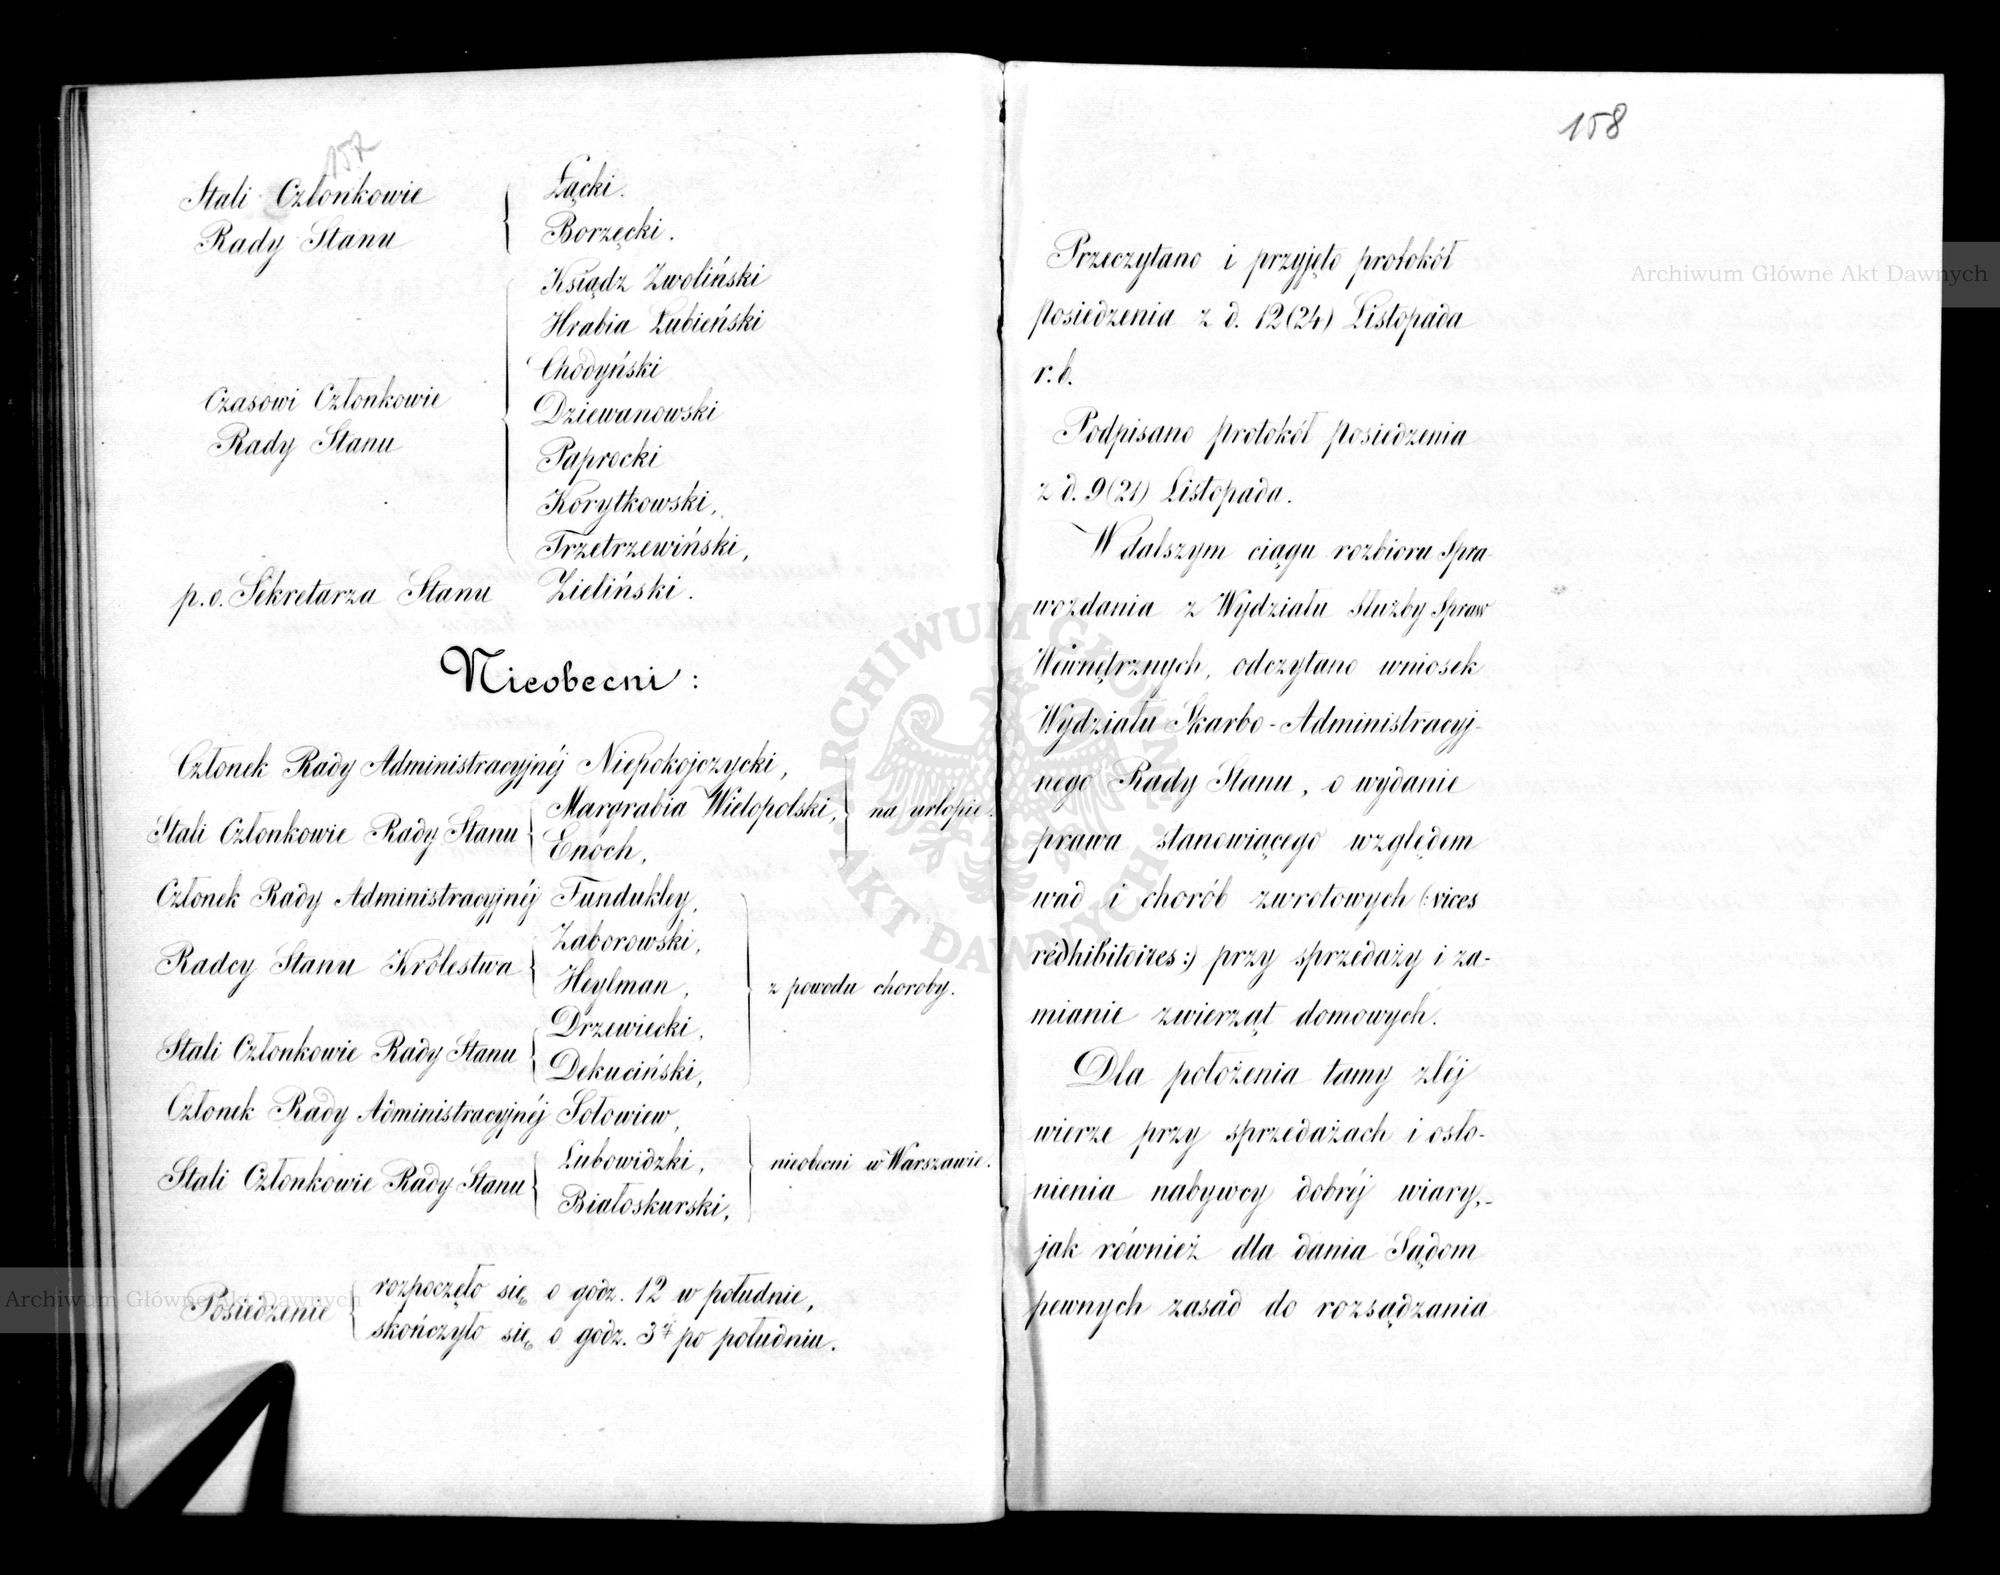 157
Stali Członkowie
Rady Stanu
Łącki.
Borzęcki.
Czasowi Członkowie
Rady Stanu
Ksiądz Zwoliński
Hrabia Łubieński
Chodyński
Dziewanowski
Paprocki
Korytkowski,
Trzetrzewiński,
p.o. Sekretarza Stanu Zieliński.
Nieobecni:
Członek Rady Administracyjnéj Niepokojczycki,
Stali Członkowie Rady Stanu
Margrabia Wielopolski,
Enoch,
na urlopie.
Członek Rady Administracyjnéj Fundukley,
Radcy Stanu Królestwa
Zaborowski,
Heylman,
Stali Członkowie Rady Stanu
Drzewiecki,
Dekuciński,
z powodu choroby.
Członek Rady Administracyjnéj Sołowiew,
Stali Członkowie Rady Stanu
Lubowidzki,
Białoskurski,
nieobecni w Warszawie.
Posiedzenie
rozpoczęło się o godz. 12 w południe,
skończyło się o godz. 3 po południu.
158
Przeczytano i przyjęto protokół
posiedzenia z d. 12(24) Listopada
r.b.
Podpisano protokół posiedzenia
z d. 9(21) Listopada.
W dalszym ciągu rozbioru Spra-
wozdania z Wydziału Służby Spraw
Wewnętrznych, odczytano wniosek
Wydziału Skarbo-Administracyj-
nego Rady Stanu, o wydanie
prawa stanowiącego względem
wad i chorób zwrotowych (:vices
rédhibitoires:) przy sprzedaży i za-
mianie zwierząt domowych.
Dla położenia tamy złéj
wierze przy sprzedażach i osło-
nienia nabywcy dobréj wiary,-
jak również dla dania Sądom
pewnych zasad do rozsądzania
Archiwum Główne Akt Dawnych
ARCHIWUM GŁÓWNE AKT DAWNYCH
Archiwum Główne Akt Dawnych